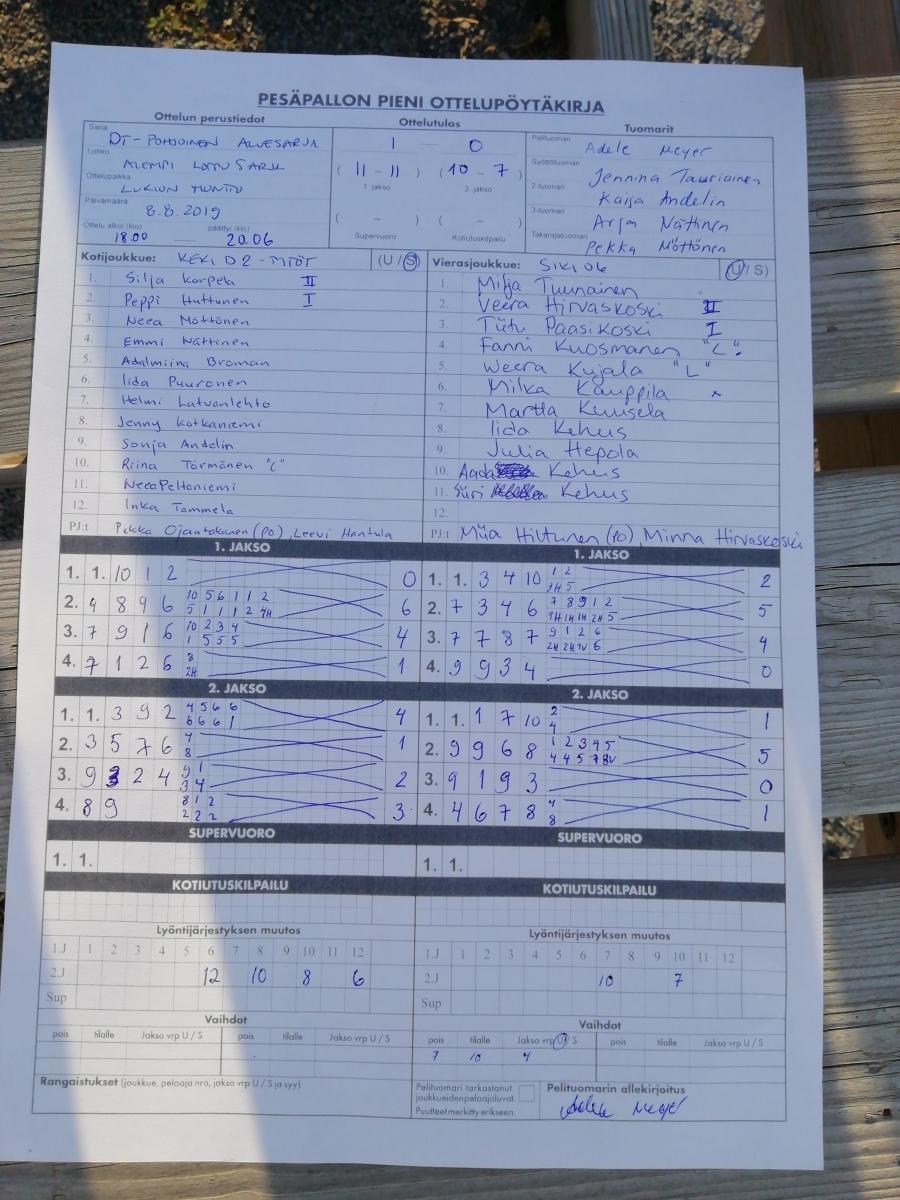 PESÄPALLON PIENI OTTELUPÖYTÄKIRJA
Ottelun perustiedot
Sarja
DT-POHJOINEN ALUESARJA
Lohko
ALEMPI LOPPUSARJA
Ottelupaikka
LUKION MONTTU
Päivämäärä
8.8.2019
Ottelu alkoi (klo) päättyi (klo)
18.00 — 20.06
Ottelutulos
1 — 0
( 11 - 11 ) ( 10 - 7 )
1. jakso 2. jakso
( - ) ( - )
Supervuoro Kotiutuskilpailu
Tuomarit
Pelituomari
Adele Meyer
Syöttötuomari
Jennina Tauriainen
2-tuomari
Kaisa Andelin
3-tuomari
Arja Nättinen
Takarajatuomari
Pekka Möttönen
Kotijoukkue: KEKI D2-TYTÖT (U / S)
1. Silja Korpela II
2. Peppi Huttunen I
3. Neea Möttönen
4. Emmi Nättinen
5. Adalmiina Broman
6. Iida Puuronen
7. Helmi Latvanlehto
8. Jenny Kotkaniemi
9. Sonja Andelin
10. Riina Törmänen "C"
11. Neea Peltoniemi
12. Inka Tammela
PJ:t Pekka Ojantakanen (PO), Leevi Hantula
Vierasjoukkue: SiKi 06 (U / S)
1. Milja Tuunainen
2. Veera Hirvaskoski II
3. Tiitu Paasikoski I
4. Fanni Kuosmanen "C"
5. Weera Kujala "L"
6. Milka Kauppila x
7. Martta Kuusela
8. Iida Kehus
9. Julia Hepola
10. Aada Kehus
11. Siiri Kehus
12.
PJ:t Miia Hiltunen (PO), Minna Hirvaskoski
1. JAKSO
1. 1. 10 1 2 0
2. 4 8 9 6 10 5 6 1 1 2 6
5 1 1 1 2 4H
3. 7 9 1 6 10 2 3 4 4
1 5 5 5
4. 7 1 2 6 8 1
2H
1. JAKSO
1. 1. 3 4 10 1 2 2
3H 5
2. 7 3 4 6 7 8 9 1 2 5
1H 1H 2H 5
3. 7 7 8 7 9 1 2 6 4
2H 2H 6
4. 9 9 3 4 0
2. JAKSO
1. 1. 3 9 2 4 5 6 6 4
6 6 6 1
2. 3 5 7 6 4 1
8
3. 9 3 2 4 9 1 2
3 4
4. 8 9 8 1 2 3
2 2 2
2. JAKSO
1. 1. 1 7 10 2 1
4
2. 9 9 6 8 1 2 3 4 5 5
4 4 5 7 8V
3. 9 1 9 3 0
4. 4 6 7 8 4 1
8
SUPERVUORO
1. 1.
SUPERVUORO
1. 1.
KOTIUTUSKILPAILU
KOTIUTUSKILPAILU
Lyöntijärjestyksen muutos
1.J 1 2 3 4 5 6 7 8 9 10 11 12
2.J 12 10 8 6
Sup
Lyöntijärjestyksen muutos
1.J 1 2 3 4 5 6 7 8 9 10 11 12
2.J 10 7
Sup
Vaihdot
pois tilalle Jakso vrp U / S pois tilalle Jakso vrp U / S
Vaihdot
pois tilalle Jakso vrp U / S pois tilalle Jakso vrp U / S
7 10 4
Rangaistukset (joukkue, pelaaja nro, jakso vrp U / S ja syy)
Pelituomari tarkastanut
joukkueidenpelaajaluvat.
Puutteet merkitty erikseen.
Pelituomarin allekirjoitus
Adele Meyer